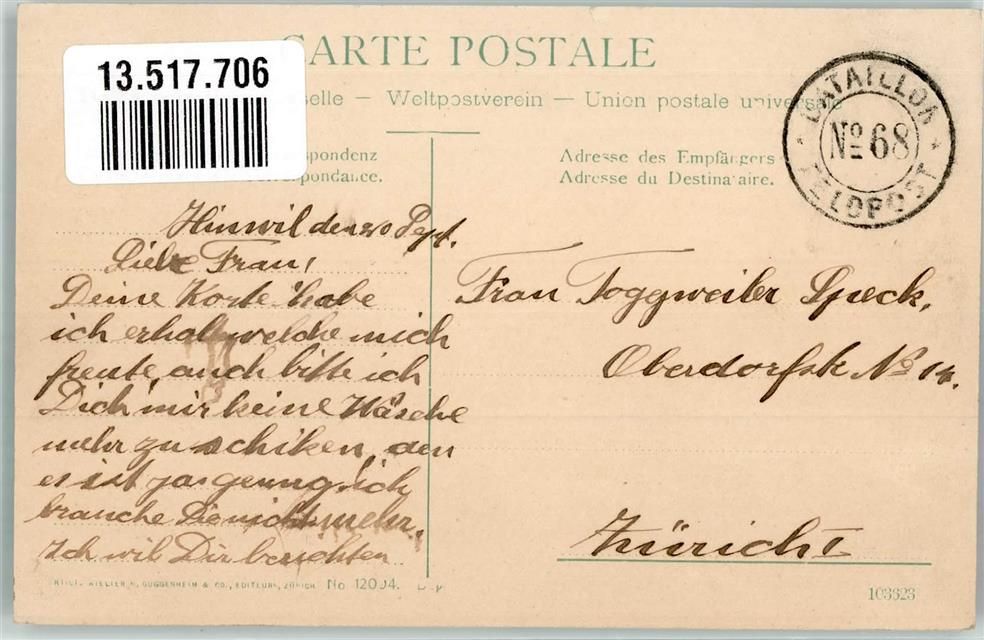 CARTE POSTALE
13.517.706
selle — Weltpostverein — Union postale universale
spondenz
respondance.
Adresse des Empfängers
Adresse du Destinataire.
BATAILLON
No 68
FELDPOST
Hinwil den 20 Sept.
Liebe Frau,
Deine Karte habe
ich erhalt welche mich
freute, auch bitte ich
Dich mir keine Wäsche
mehr zu schiken, den
es ist ja genug, ich
brauche Sie nicht mehr.
Ich wil Dir berichten
Frau Toggweiler Speck,
Oberdorfstr. No 14.
Züricht
ATELIER H. GUGGENHEIM & CO., EDITEURS, ZÜRICH. No 12094. Dep
103623